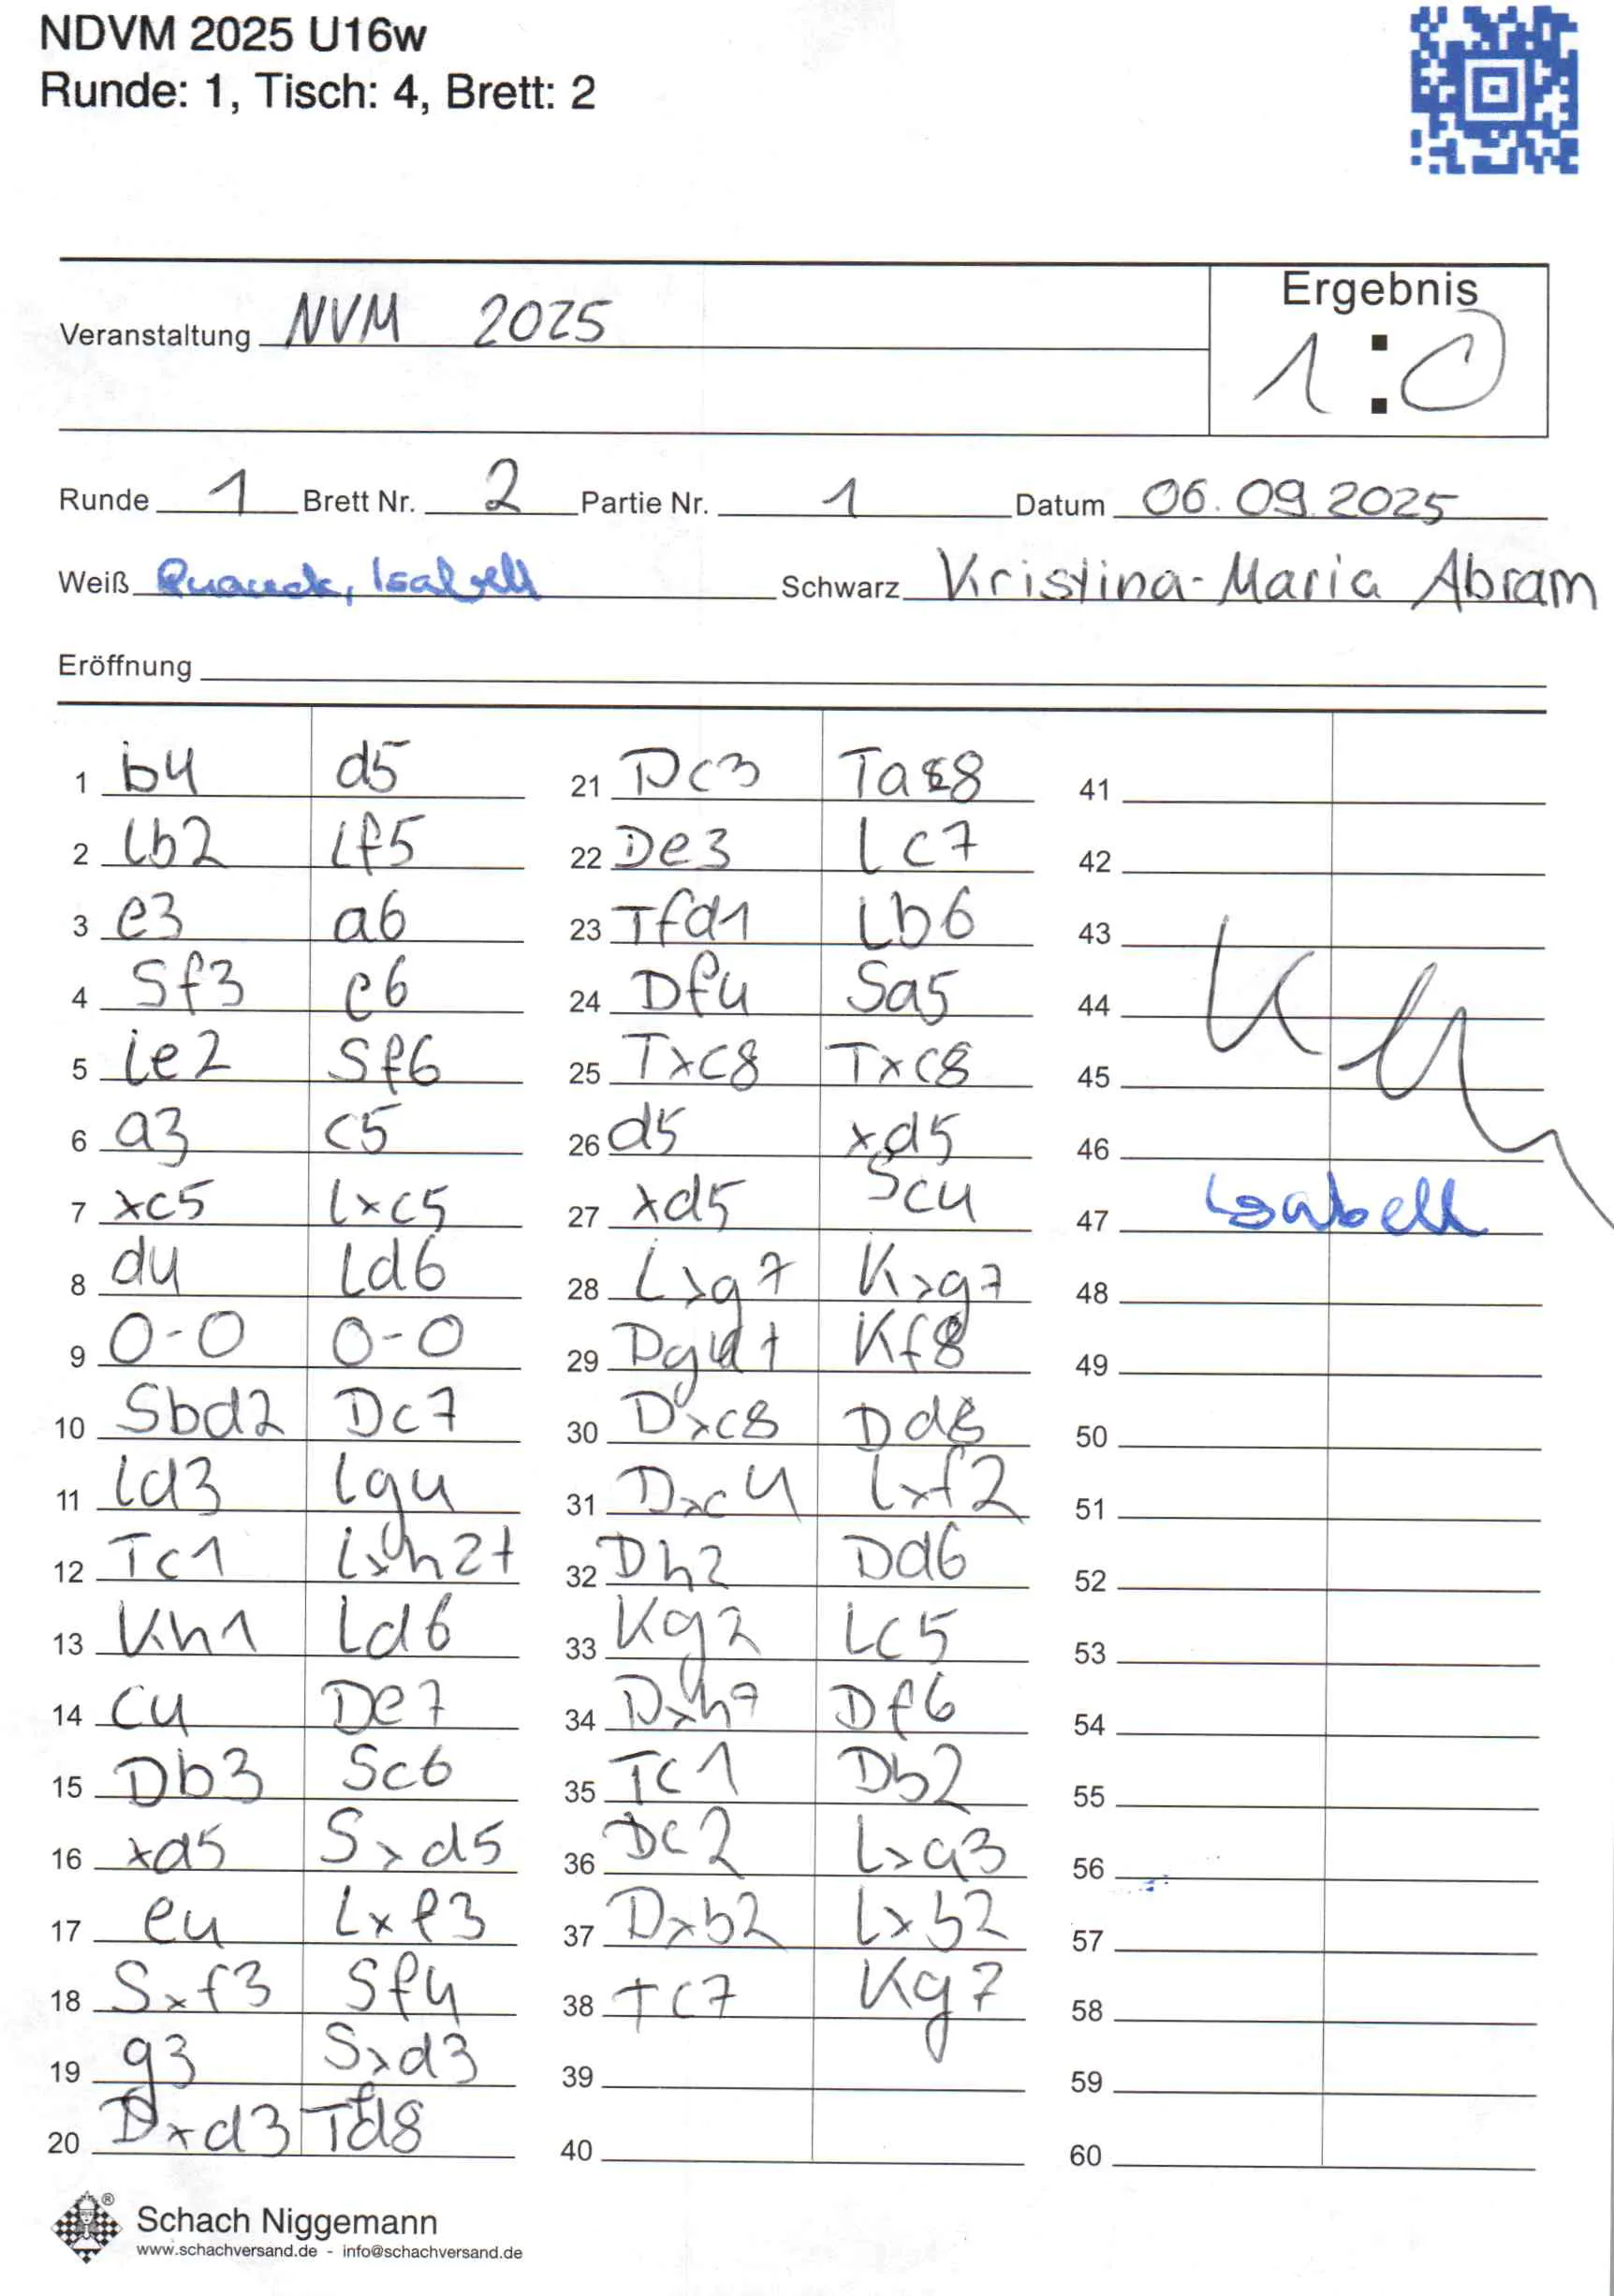 NDVM 2025 U16w
Runde: 1, Tisch: 4, Brett: 2
Ergebnis
Veranstaltung NVM 2025
1:0
Runde 1 Brett Nr. 2 Partie Nr. 1 Datum 06.09.2025
Weiß Isabell Schwarz Kristina-Maria Abram
Eröffnung
1 b4 d5 21 Dc3 Tac8 41
2 Lb2 Lf5 22 De3 Lc7 42
3 e3 a6 23 Tfd1 Lb6 43
4 Sf3 e6 24 Df4 Sa5 44
5 Le2 Sf6 25 Txc8 Txc8 45
6 a3 c5 26 d5 xd5 46
7 xc5 Lxc5 27 xd5 Sc4 47 Isabell
8 d4 Ld6 28 Lxg7 Kxg7 48
9 0-0 0-0 29 Dg4+ Kf8 49
10 Sbd2 Dc7 30 Dxc8 Dd8 50
11 Ld3 Lg4 31 Dxc4 Lxf2 51
12 Tc1 Lxh2+ 32 Dh2 Dd6 52
13 Kh1 Ld6 33 Kg2 Lc5 53
14 c4 De7 34 Dxh7 Df6 54
15 Db3 Sc6 35 Tc1 Db2 55
16 xd5 Sxd5 36 Dc2 Lxa3 56
17 e4 Lxf3 37 Dxb2 Lxb2 57
18 Sxf3 Sf4 38 Tc7 Kg7 58
19 g3 Sxd3 39 59
20 Dxd3 Tfd8 40 60
Schach Niggemann
www.schachversand.de - info@schachversand.de